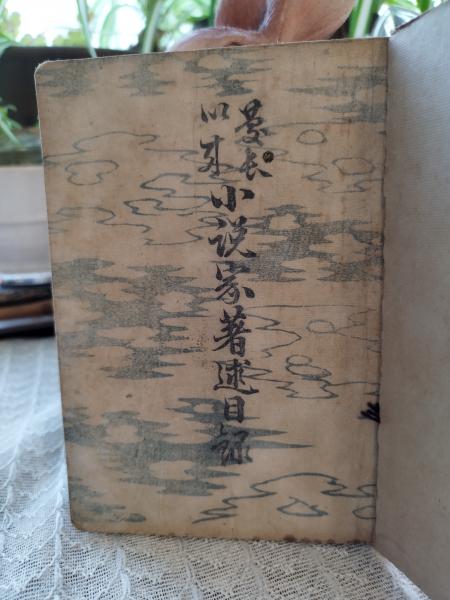 慶長
以来
小説家著述目録